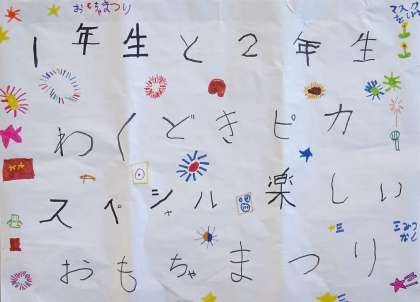 おもちゃまつり
1年生と2年生
わくどきピカ
スペシャル楽しい
おもちゃまつり